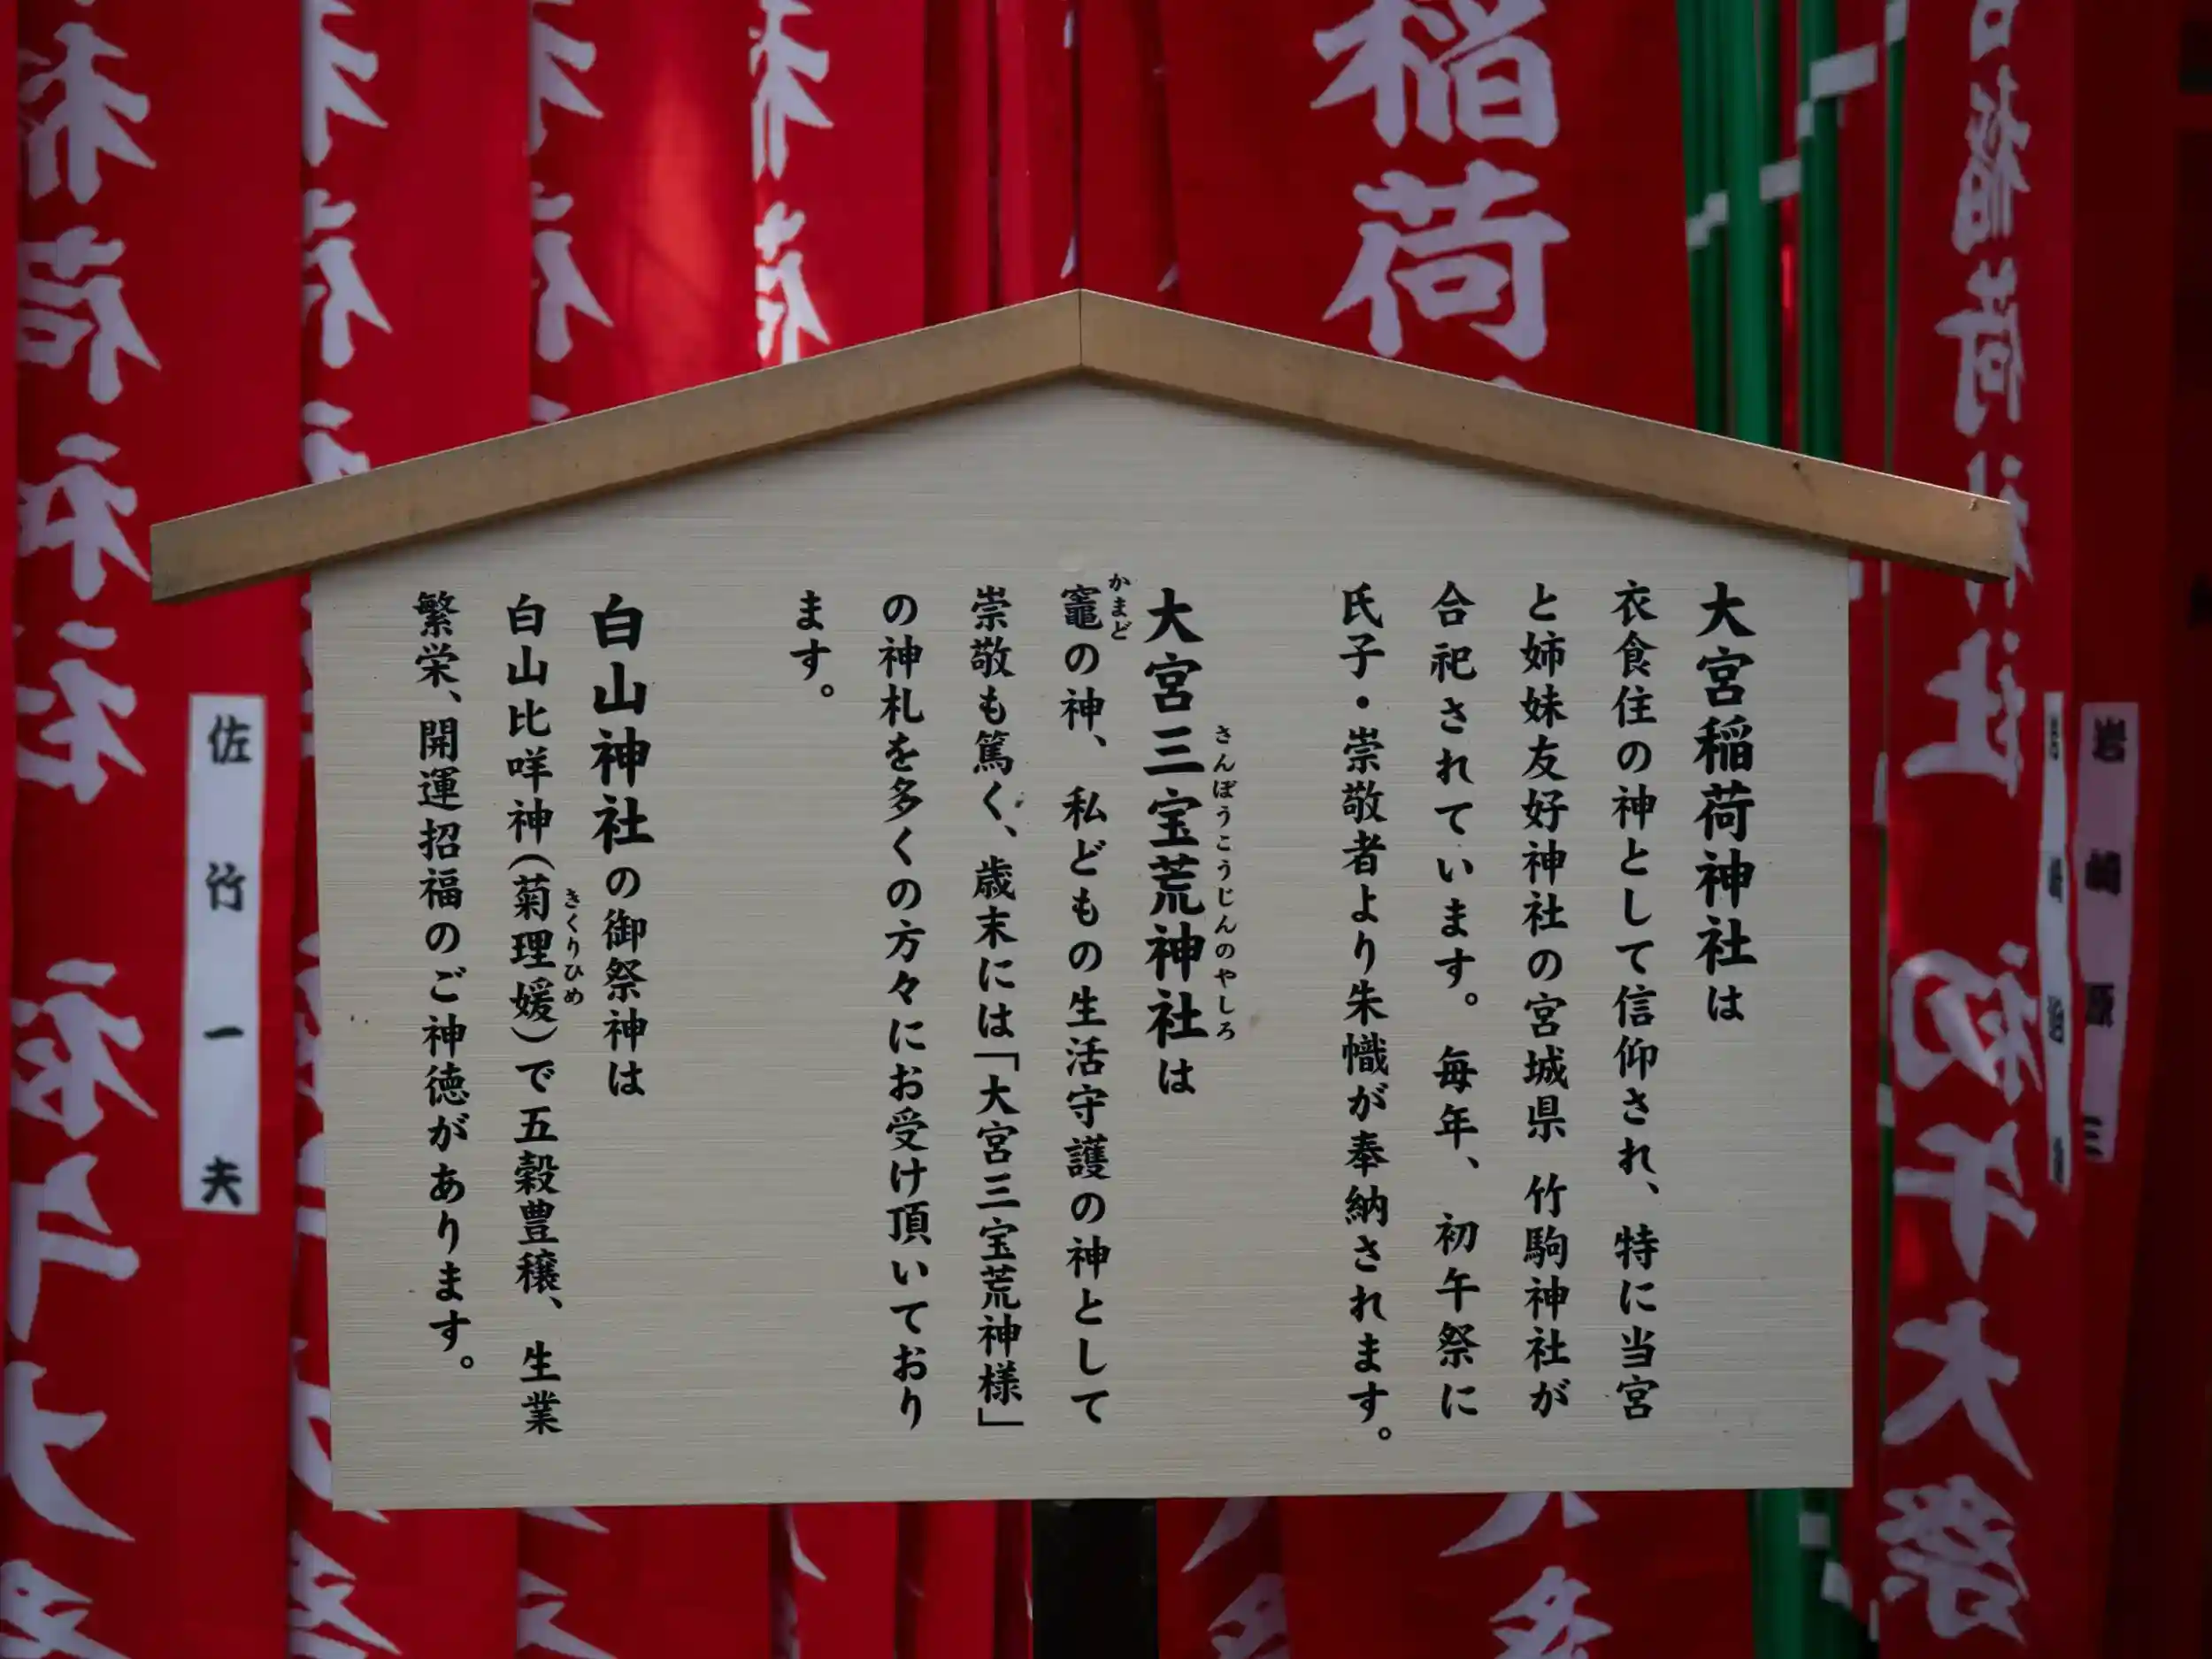 大宮稲荷神社は
衣食住の神として信仰され、特に当宮
と姉妹友好神社の宮城県 竹駒神社が
合祀されています。毎年、初午祭に
氏子・崇敬者より朱幟が奉納されます。
大宮三宝荒神社は
さんぽうこうじんのやしろ
竈の神、私どもの生活守護の神として
かまど
崇敬も篤く、歳末には「大宮三宝荒神様」
の神札を多くの方々にお受け頂いており
ます。
白山神社の御祭神は
白山比咩神(菊理媛)で五穀豊穣、生業
きくりひめ
繁栄、開運招福のご神徳があります。
稲荷
佐竹一夫
初午大祭